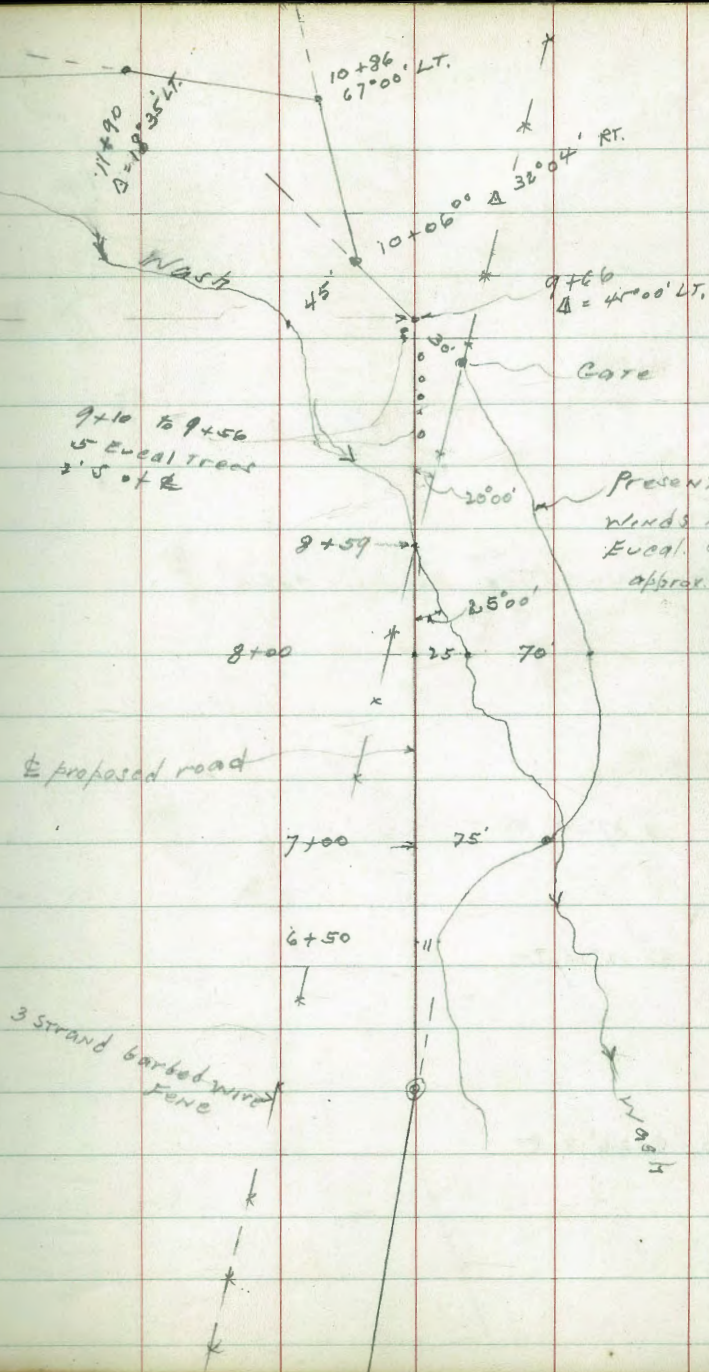 10+86
67°00' LT.
11+90
Δ=18°35' LT.
10+06°° Δ 32°04' RT.
Wash
45'
9+66
Δ = 45°00' LT.
30'
Gate
9+10 to 9+56
5 Eucal Trees
2' S of ℄
20°00'
Present
Winds
Eucal.
approx.
8+59
25°00'
8+00
25
70'
℄ proposed road
7+00
75'
6+50
11
3 Strand barbed wire
Fence
Wash